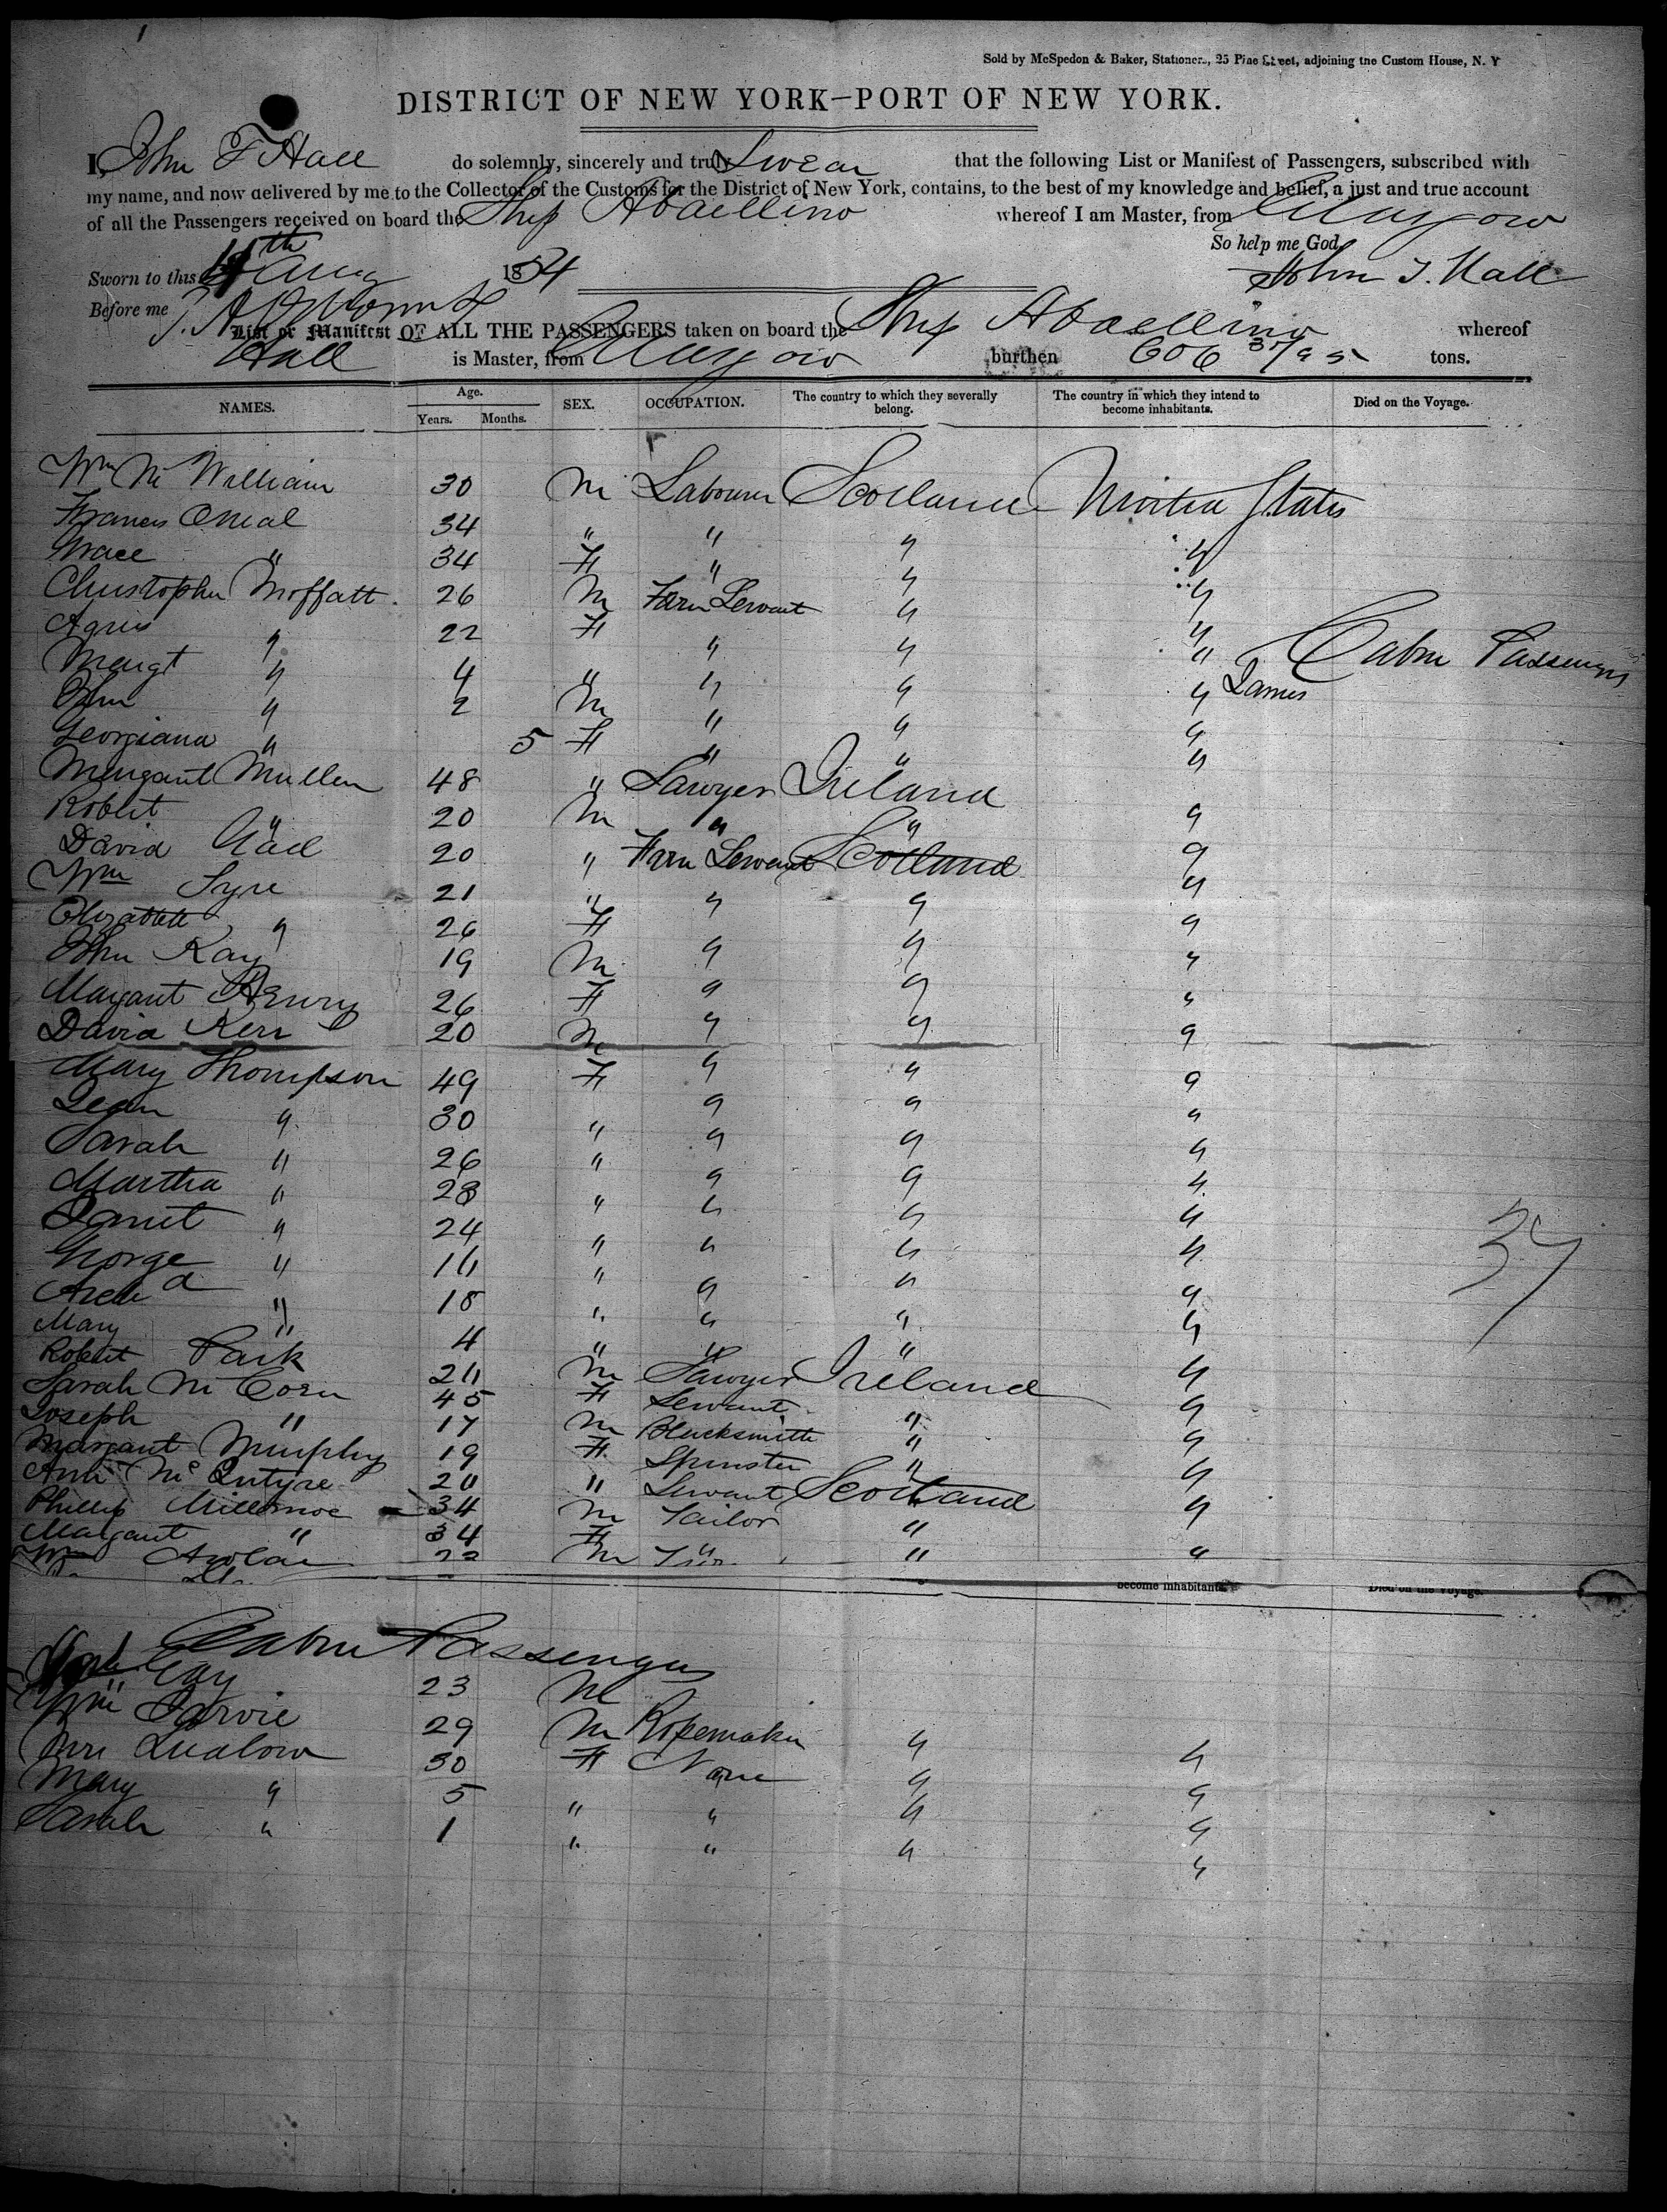 Sold by McSpedon & Baker, Stationers, 25 Pine Street, adjoining the Custom House, N. Y
DISTRICT OF NEW YORK—PORT OF NEW YORK.
I, John T Hall do solemnly, sincerely and truly Swear that the following List or Manifest of Passengers, subscribed with
my name, and now delivered by me to the Collector of the Customs for the District of New York, contains, to the best of my knowledge and belief, a just and true account
of all the Passengers received on board the Ship Abaellino whereof I am Master, from Glasgow
So help me God.
Sworn to this Aug 1854 John T. Hall
Before me
List or Manifest OF ALL THE PASSENGERS taken on board the Ship Abaellino whereof
Hall is Master, from Glasgow burthen 606 tons.
NAMES. Age. Years. Months. SEX. OCCUPATION. The country to which they severally belong. The country in which they intend to become inhabitants. Died on the Voyage.
Wm Mc William 30 M Labourer Scotland United States
Francis ONeal 34 " " " "
Grace " 34 F " " "
Christopher Moffatt 26 M Farm Servant " "
Agnes " 22 F " " "
Cabin Passengers
Margt " 4 " " " "
James
John " 2 M " " "
Georgiana " 5 F " " "
Margaret Mullen 48 " Sawyer Ireland "
Robert " 20 M " " "
David 20 " Farm Servant Scotland "
Wm Syre 21 " " " "
Elizabeth " 26 F " " "
John Kay 19 M " " "
Margaret Henry 26 F " " "
David Kerr 20 M " " "
Mary Thompson 49 F " " "
Jean " 30 " " " "
Sarah " 26 " " " "
Martha " 28 " " " "
Janet " 24 " " " "
George " 16 " " " "
Archd " 18 " " " "
Mary " 4 " " " "
37
Robert Park 20 M Sawyer Ireland "
Sarah Mc Corn 45 F Servant " "
Joseph " 17 M Blacksmith " "
Margaret Murphy 19 F Spinster " "
Ann McIntyre 20 " Servant Scotland "
Phillip 34 M Tailor " "
Margaret " 34 F " " "
Wm 22 M
become inhabitants. Died on the Voyage.
Cabin Passengers
Gay 23 M
Wm Jarvie 29 M Ropemaker " "
Mrs Ludlow 30 F None " "
Mary " 5 " " " "
Sarah " 1 " " " "